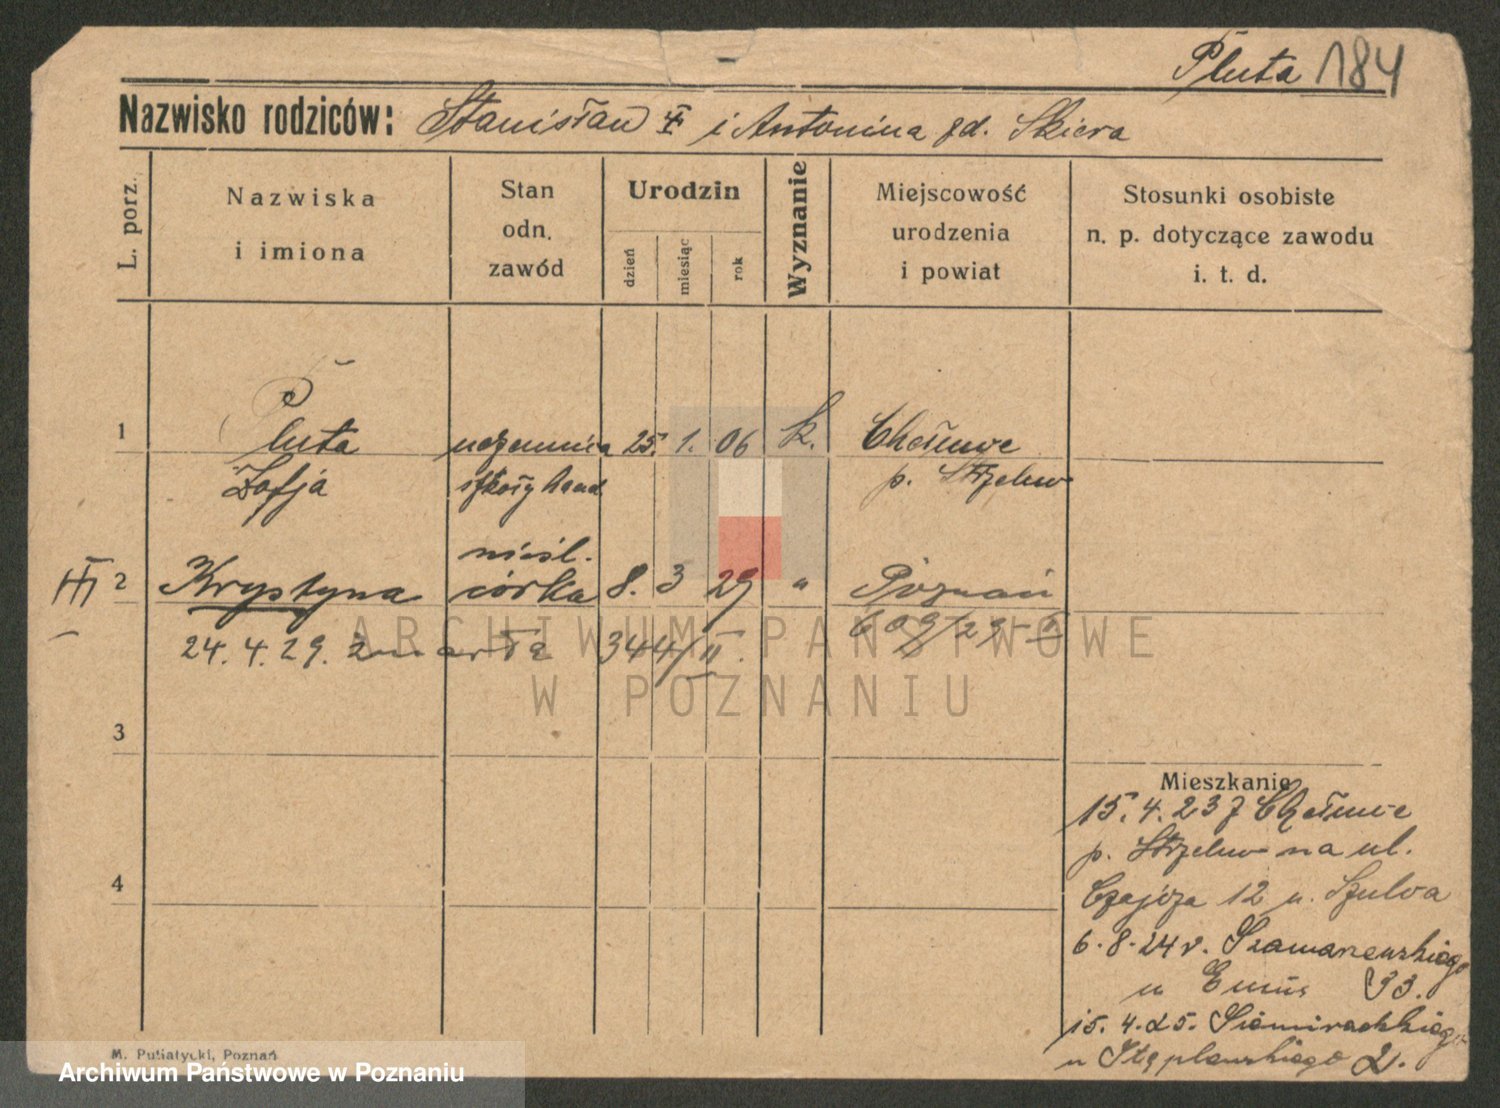 Pluta 184
Nazwisko rodziców: Stanisław i Antonina zd. Skiera
L. porz.
Nazwiska
i imiona
Stan
odn.
zawód
Urodzin
dzień
miesiąc
rok
Wyznanie
Miejscowość
urodzenia
i powiat
Stosunki osobiste
n. p. dotyczące zawodu
i. t. d.
1 Pluta uczennica 25. 1. 06 k. Chełmce
Zofja szkoły hand p. Strzelno
nieśl.
III 2 Krystyna córka 8. 3 29 " Poznań
609/29 II
24. 4. 29. zmarła 344/II.
3
4
Mieszkanie
15. 4. 23 z Chełmce
p. Strzelno na ul.
12 u. Szulca
6. 8. 24 r. Szamarzewskiego
u 33.
15. 4. 25. Siemiradzkiego
u 2.
M. Putiatycki, Poznań
ARCHIWUM PAŃSTWOWE
W POZNANIU
Archiwum Państwowe w Poznaniu